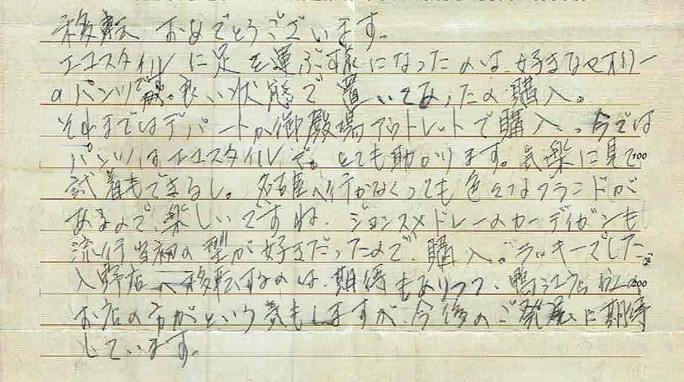 移転 おめでとうございます。
エコスタイルに足を運ぶ様になったのは、好きなセオリー
のパンツが。良い状態で置いてあったの購入。
それまではデパートか御殿場アウトレットで購入。今では
パンツはエコスタイルで。とても助かります。気楽に見て
試着もできるし。名古屋へ行かなくっても色々なブランドが
あるので、楽しいですね。ジョンスメドレーのカーディガンも
流行当初の型が好きだったので、購入。ラッキーでした
入野店へ移転するのは、期待もありつつ、鴨江店
お店の方がという気もしますが、今後のご発展に期待
しています。